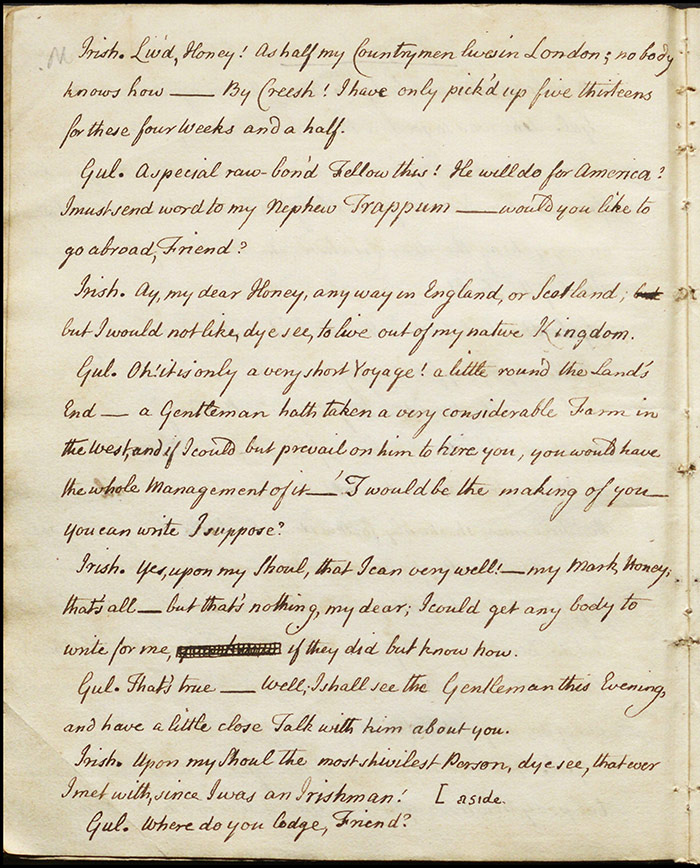 Irish. Liv'd, Honey! As half my Countrymen lives in London; no body
knows how — By Creesh! I have only pick'd up five thirteens
for these four Weeks and a half.
Gul. A special raw-bon'd Fellow this! He will do for America?
I must send word to my Nephew Trappum — would you like to
go abroad, Friend?
Irish. Ay, my dear Honey, any way in England, or Scotland;
but I would not like, dye see, to live out of my native Kingdom.
Gul. Oh! it is only a very short Voyage! a little round the Land's
End — a Gentleman hath taken a very considerable Farm in
the West, and if I could but prevail on him to hire you, you would have
the whole Management of it — 'Twould be the making of you —
you can write I suppose?
Irish. Yes, upon my Shoul, that I can very well! — my Mark, Honey;
that's all — but that's nothing, my dear; I could get any body to
write for me, if they did but know how.
Gul. That's true — Well, I shall see the Gentleman this Evening,
and have a little close Talk with him about you.
Irish. Upon my Shoul the most shivilest Person, dye see, that ever
I met with, since I was an Irishman! [ aside.
Gul. Where do you lodge, Friend?